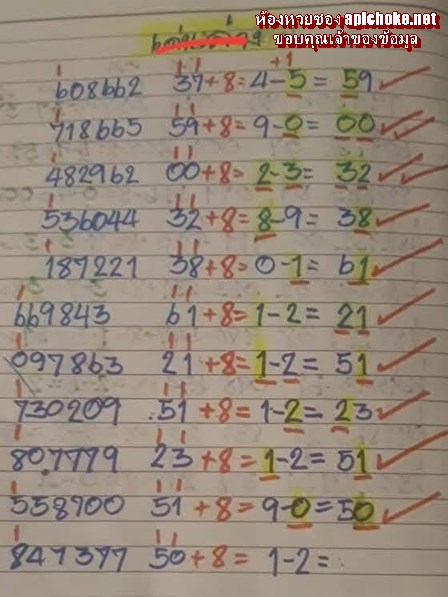 ห้องหายซอง apichoke.net
ขอบคุณเจ้าของข้อมูล
+1
608662 37+8= 4-5= 59
718665 59+8= 9-0= 00
482962 00+8= 2-3= 32
536044 32+8= 8-9= 38
187221 38+8= 0-1= 61
669843 61+8= 1-2= 21
097863 21+8= 1-2= 51
730209 51+8= 1-2= 23
807779 23+8= 1-2= 51
558700 51+8= 9-0= 50
847377 50+8= 1-2=